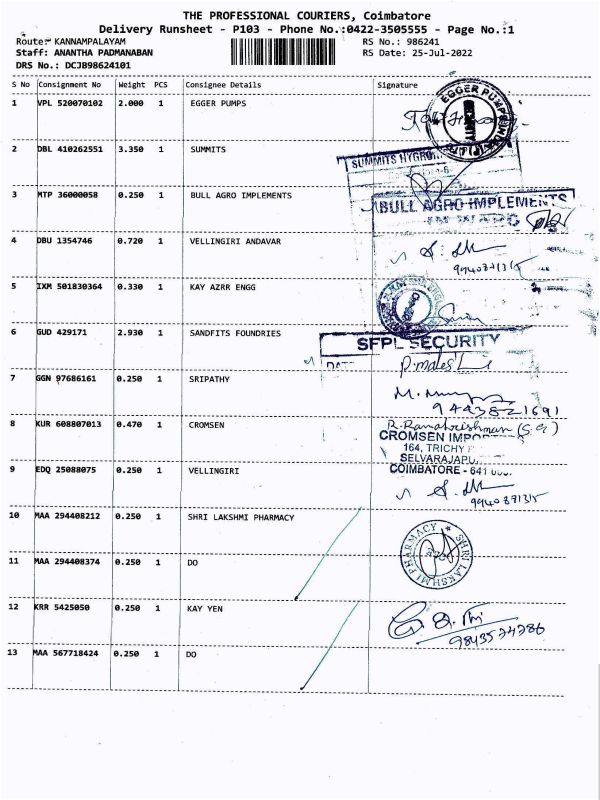 THE PROFESSIONAL COURIERS, Coimbatore
Delivery Runsheet - P103 - Phone No.:0422-3505555 - Page No.:1
Route: KANNAMPALAYAM RS No.: 986241
Staff: ANANTHA PADMANABAN RS Date: 25-Jul-2022
DRS No.: DCJB98624101
S No Consignment No Weight PCS Consignee Details Signature
1 VPL 520070102 2.000 1 EGGER PUMPS
EGGER PUMPS
2 DBL 410262551 3.350 1 SUMMITS
SUMMITS HYGRO
3 MTP 36000058 0.250 1 BULL AGRO IMPLEMENTS
BULL AGRO IMPLEMENTS
4 DBU 1354746 0.720 1 VELLINGIRI ANDAVAR
5 IXM 501830364 0.330 1 KAY AZRR ENGG
6 GUD 429171 2.930 1 SANDFITS FOUNDRIES
SFPL SECURITY
7 GGN 97686161 0.250 1 SRIPATHY
9443821691
8 KUR 608807013 0.470 1 CROMSEN
R. Ramakrishnan
CROMSEN IMPO
164, TRICHY
SELVARAJAPU
COIMBATORE - 641
9 EDQ 25088075 0.250 1 VELLINGIRI
9940891315
10 MAA 294408212 0.250 1 SHRI LAKSHMI PHARMACY
SHRI LAKSHMI PHARMACY
11 MAA 294408374 0.250 1 DO
12 KRR 5425050 0.250 1 KAY YEN
13 MAA 567718424 0.250 1 DO